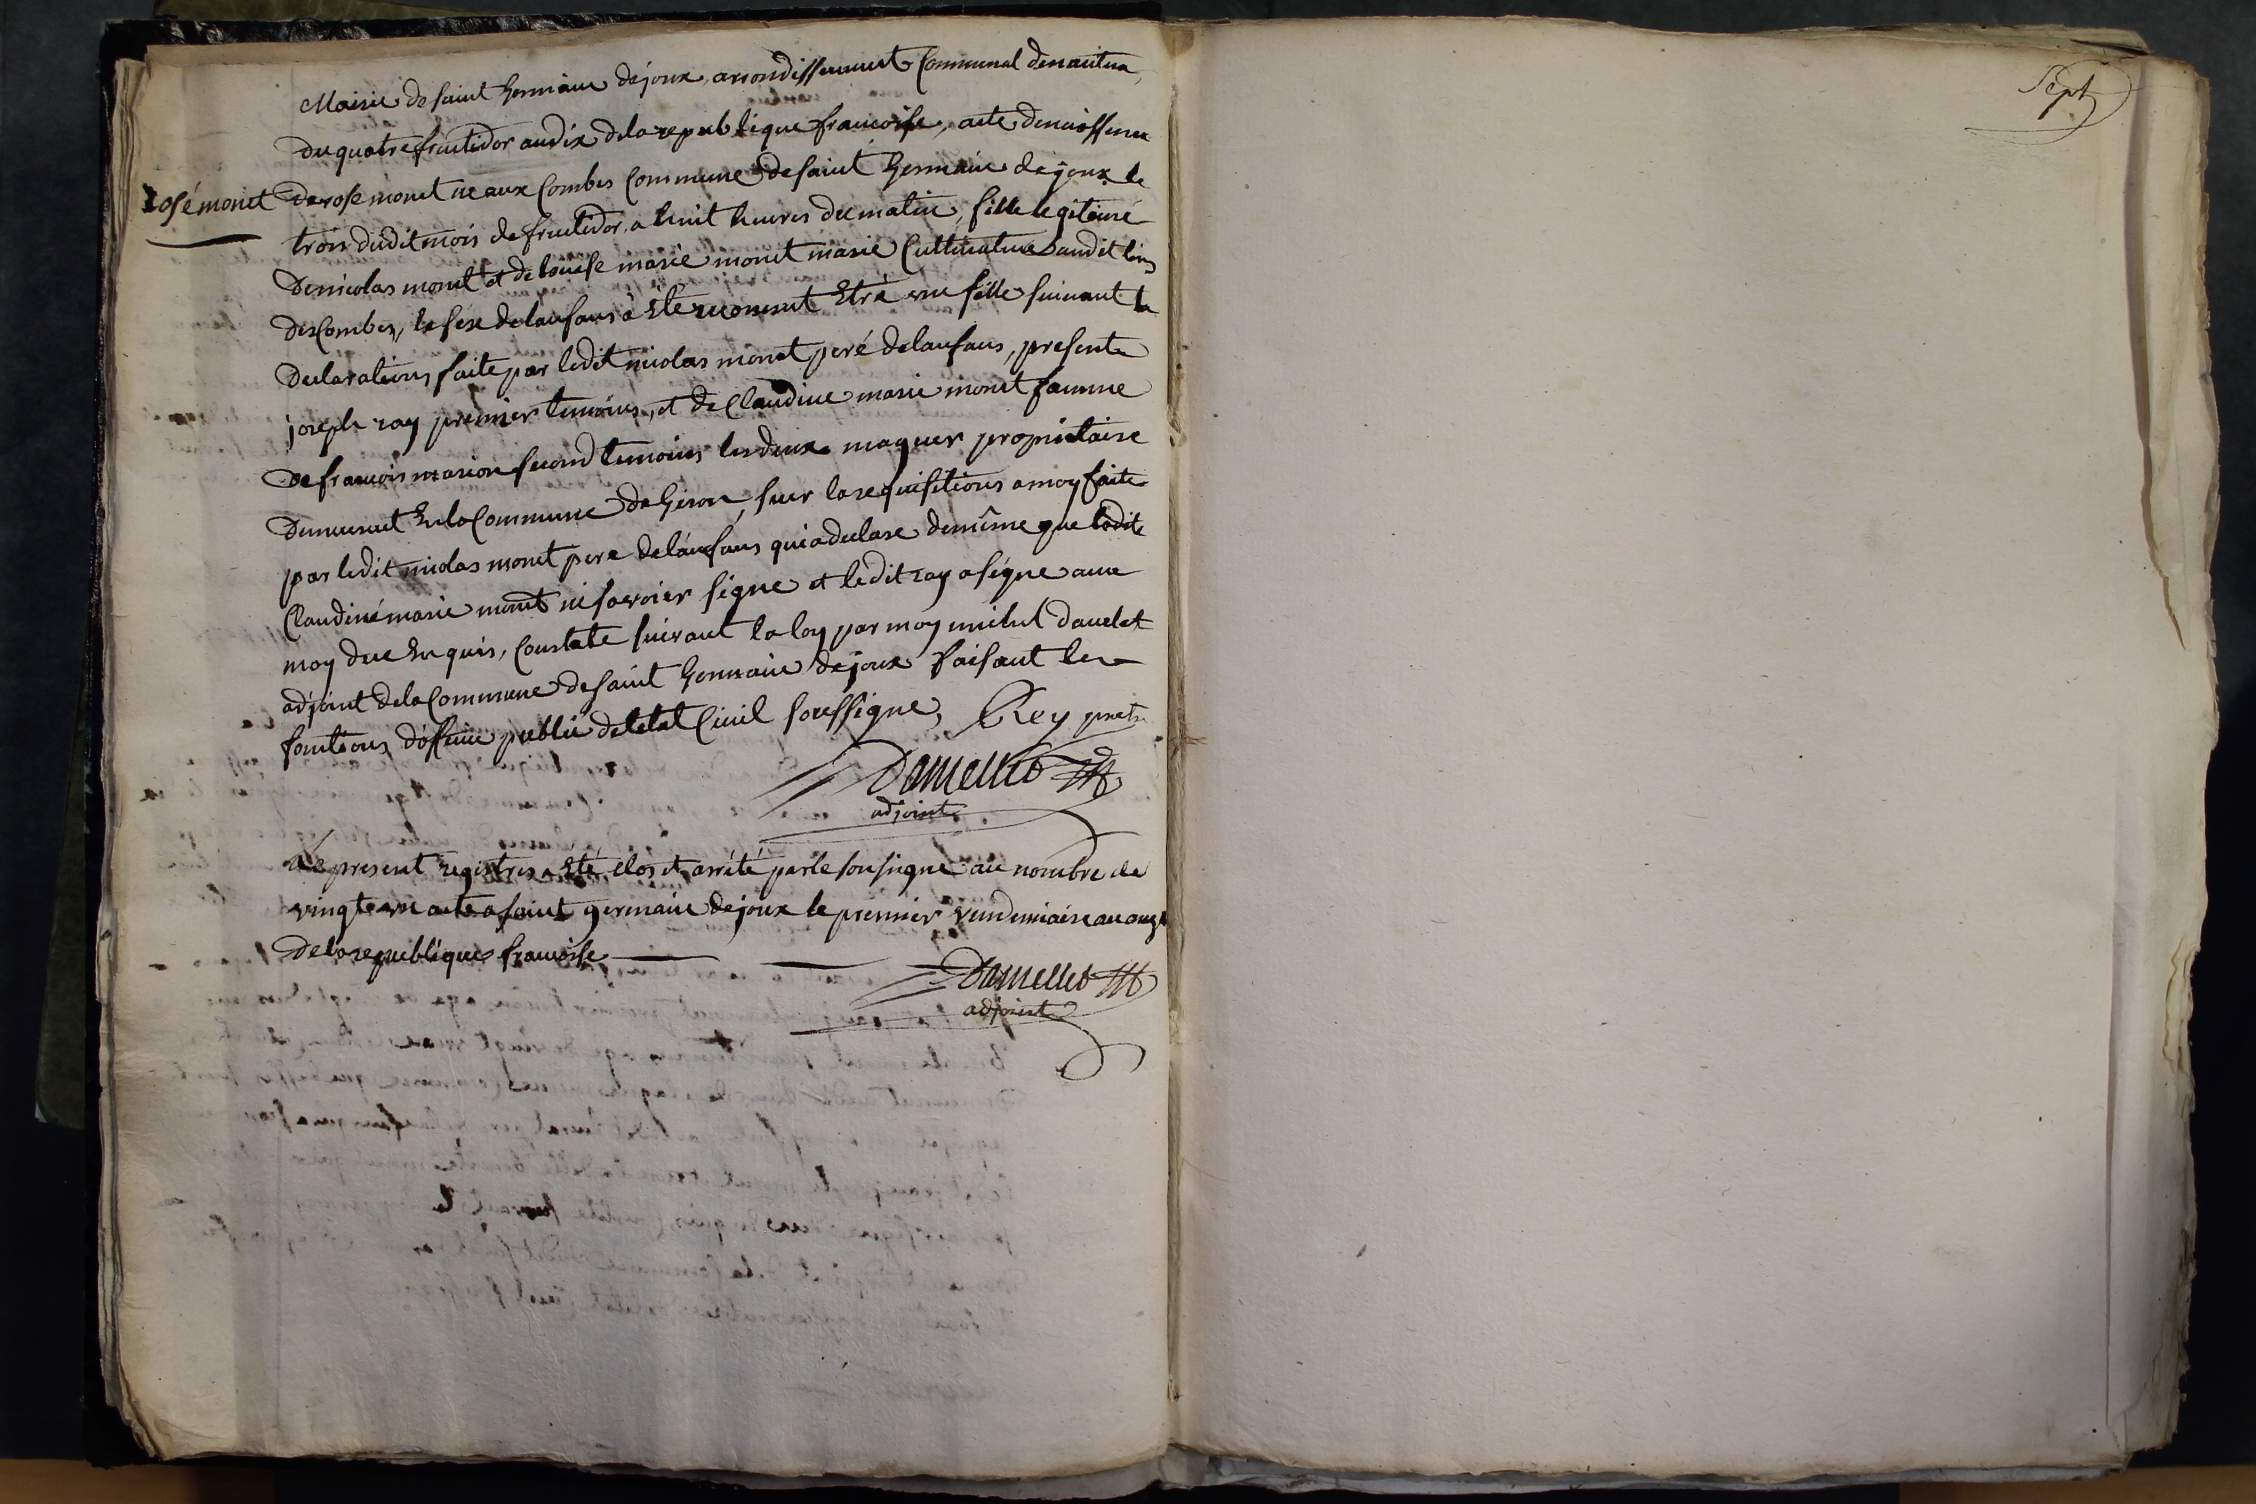 Sept
Mairie de saint Germain dejoux, arrondissement Communal denantua,
du quatre fructidor andix dela republique francoise, acte denaissence
rosémonet
derose monet ne aux Combes Commune desaint Germain dejoux le
trois dudit mois de fructidor, a huit heures dumatin, fille legitimé
denicolas monet et delouise marie monet marie Cultivateurs audit lieu
desCombes, le sexe delanfans à été reconnut Etré une fille suivant la
declarations faite par ledit nicolas monet peré delanfans, presente
joseph ray premier temoins, et de Claudine marie monet famme
de francois marion second temoins les deux maguer propriétaire
demeurent En la Commune de Giron, sur la requisitions a moy faite
par ledit nicolas monet pere delanfans qui a declare demême que ladite
Claudiné marie monet ne savoier signe et ledit ray a signe avec
moy due Enquis, Constate suivant la loy par moy michel
adjoint dela Commune desaint Germain dejoux faisant les
fonctions dofficié public deletat Civil soussigne, Rey
adjoint
Le present registres a Eté clos et arrété par le sousigne au nombre de
vingt un acte a saint germain dejoux le premier vendemiaire an onze
dela republiques francoise
adjoint